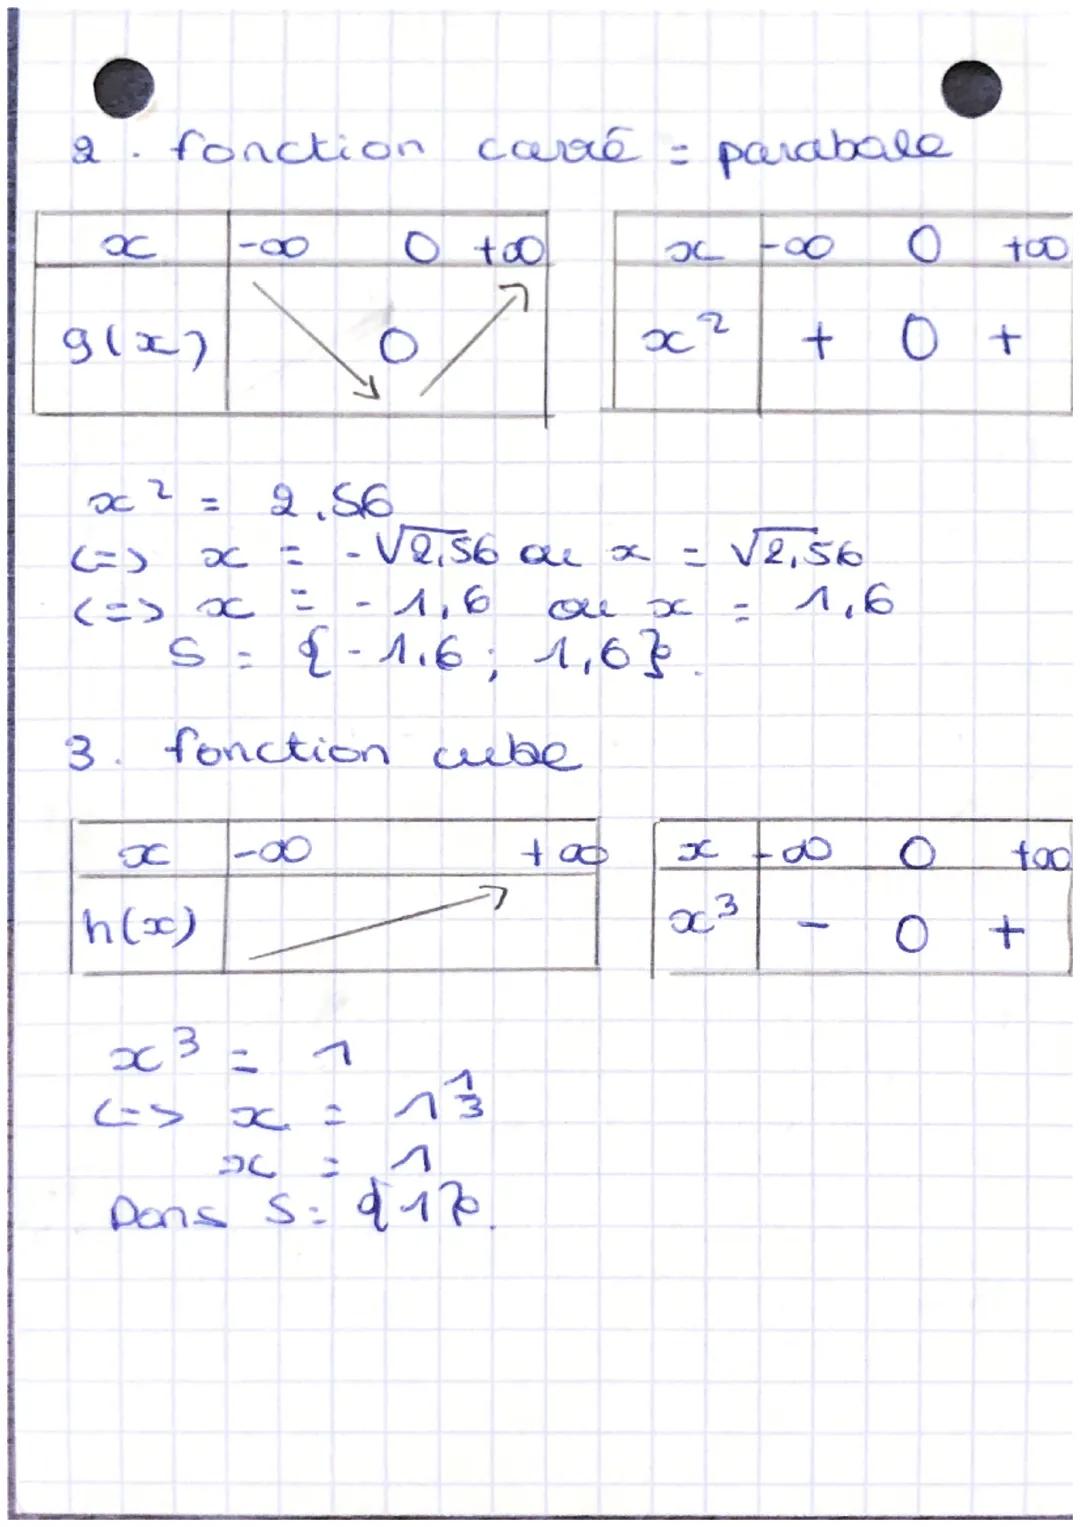 2. fonction carré = parabole
x -∞ 0 +∞
g(x) 0
x -∞ 0 +∞
x² + 0 +
x² = 2,56
<=> x = -√2,56 ou x = √2,56
<=> x = -1,6 ou x = 1,6
S = {-1,6 ; 1,6}.
3. fonction cube
x -∞ +∞
h(x)
x -∞ 0 +∞
x³ - 0 +
x³ = 1
<=> x = 1^1/3
x = 1
Dons S = {1}.